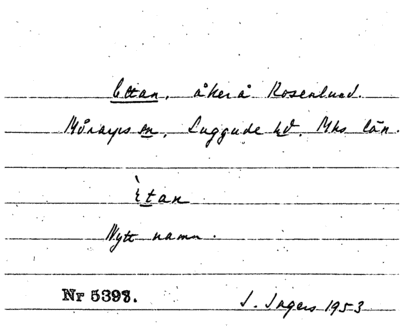 Ettan, åker å Rosenlund.
Mörarps sn, Luggude hd, Mhs län.
È̀tan
Nytt namn.
Nr 5398. I. Ingers 1953